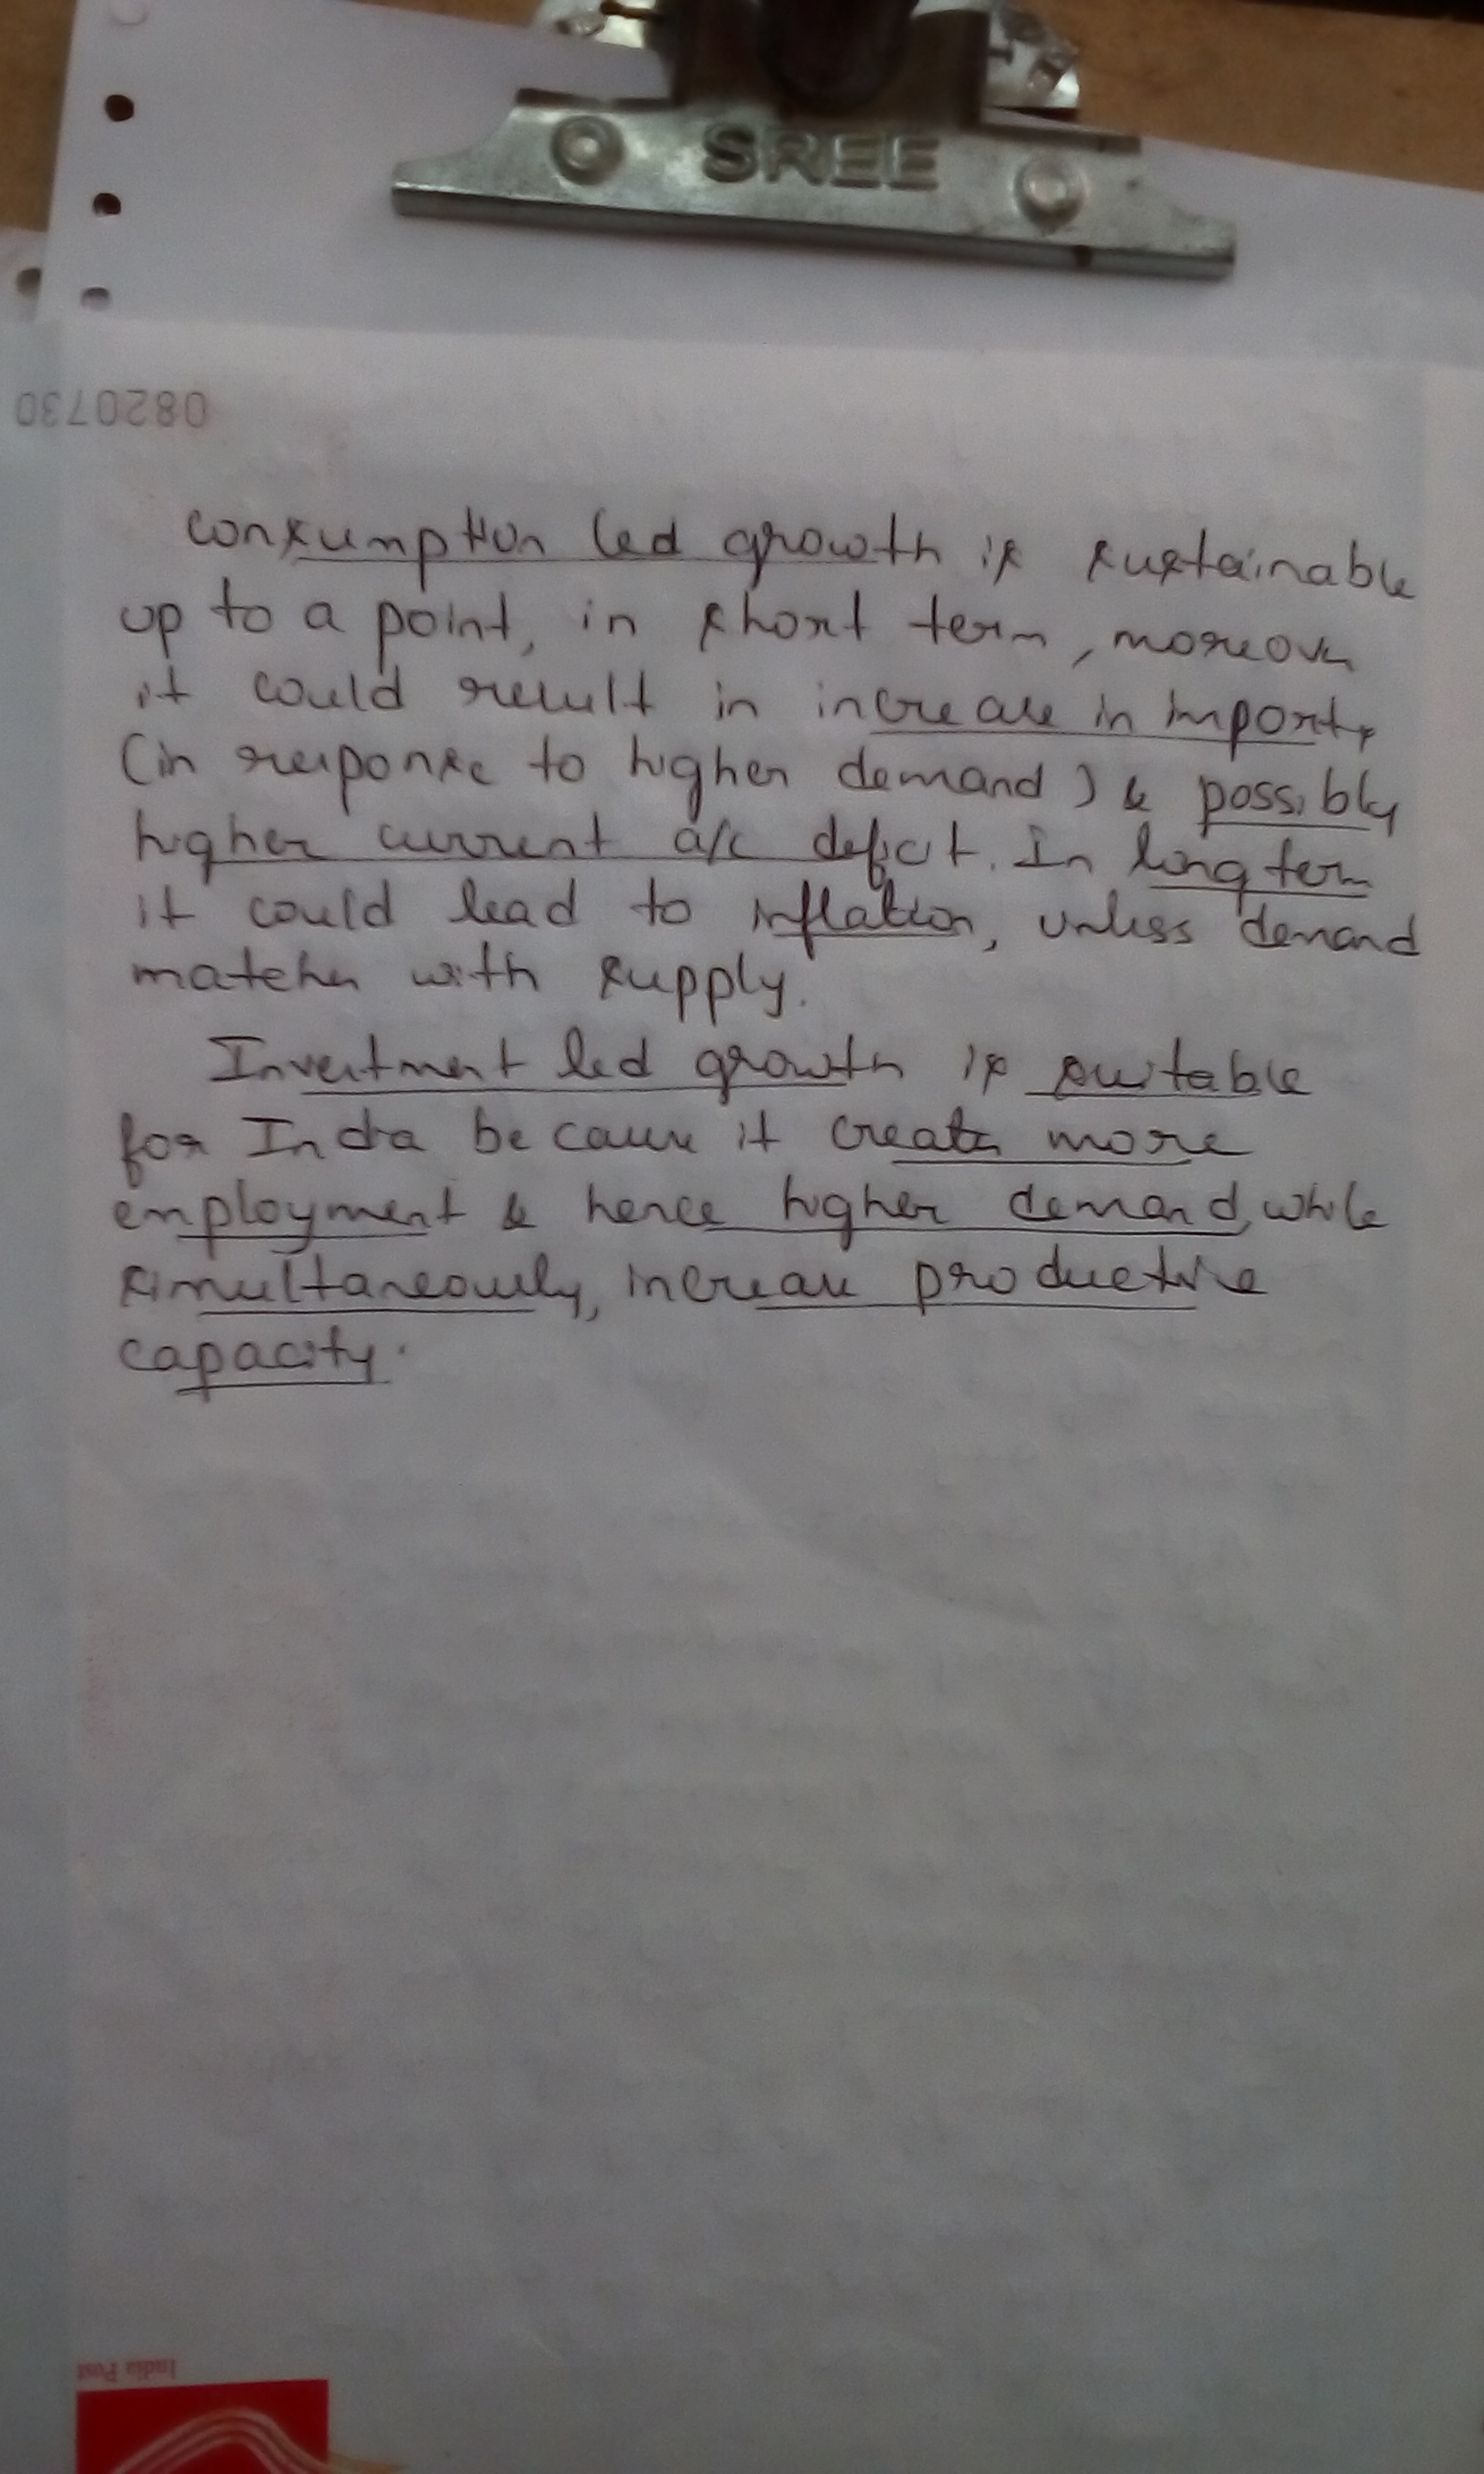 SREE
0820730
consumption led growth is sustainable
up to a point, in short term, moreover
it could result in increase in imports
(in response to higher demand) & possibly
higher current a/c deficit. In long term
it could lead to inflation, unless demand
matches with supply.
Investment led growth is suitable
for India because it creates more
employment & hence higher demand, while
simultaneously, increase productive
capacity.
India Post